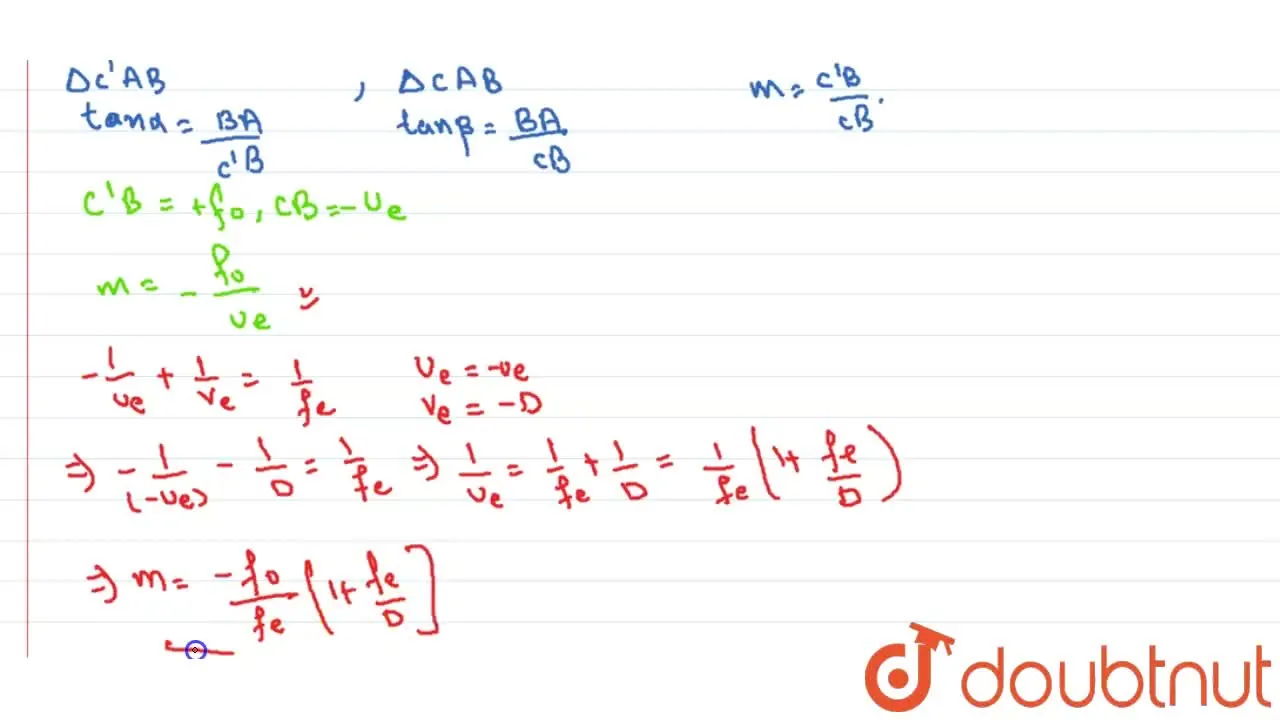 ΔC'AB , ΔCAB m = C'B/CB.
tanα = BA/C'B tanβ = BA/CB
C'B = +fo, CB = -ue
m = -fo/ue
-1/ue + 1/ve = 1/fe ue = -ue
ve = -D
⇒ -1/(-ue) - 1/D = 1/fe ⇒ 1/ue = 1/fe + 1/D = 1/fe (1+ fe/D)
⇒ m = -fo/fe [1+ fe/D]
doubtnut